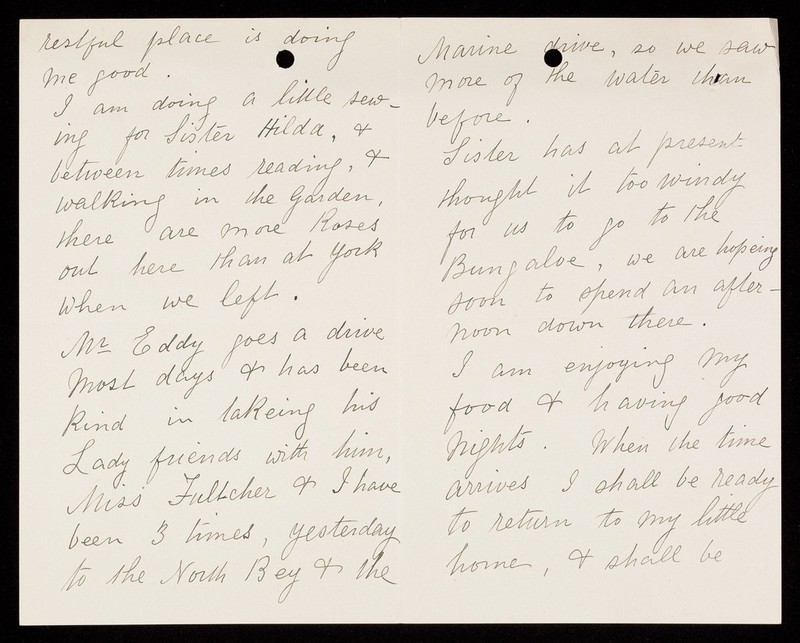 restful place is doing
me good.
I am doing a little sew-
ing for Sister Hilda, &
between times reading, &
walking in the Garden,
there are more Roses
out here than at York
when we left.
Mr Eddy goes a drive
most days & has been
kind in takeing his
Lady friends with him,
Miss Fultcher & I have
been 3 times, yesterday
to the North Bey & the
Marine drive, so we saw
more of the water than
before.
Sister has at present
thought it too windy
for us to go to the
Bungaloe, we are hopeing
soon to spend an after-
noon down there.
I am enjoying my
food & having good
nights. When the time
arrives I shall be ready
to return to my little
home, & shall be